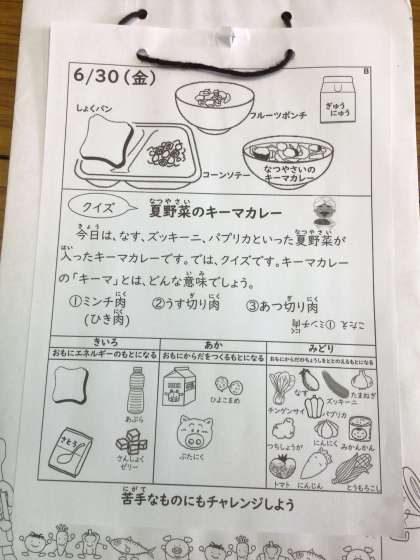 6/30(金)
B
しょくパン
フルーツポンチ
ぎゅうにゅう
コーンソテー
なつやさいの
キーマカレー
クイズ
夏野菜のキーマカレー
なつやさい
今日は、なす、ズッキーニ、パプリカといった夏野菜が
きょう
なつやさい
入ったキーマカレーです。では、クイズです。キーマカレー
はい
の「キーマ」とは、どんな意味でしょう。
いみ
①ミンチ肉 ②うす切り肉 ③あつ切り肉
にく
ぎ にく
ぎ にく
(ひき肉)
にく
こたえ ①ミンチ肉
にく
きいろ
おもにエネルギーのもとになる
あか
おもにからだをつくるもとになる
みどり
おもにからだのちょうしをととのえるもとになる
あぶら
さとう
さんしょく
ゼリー
ひよこまめ
ぶたにく
なす
ズッキーニ
たまねぎ
チンゲンサイ
パプリカ
つちしょうが
にんにく
みかんかん
トマト
にんじん
とうもろこし
苦手なものにもチャレンジしよう
にがて